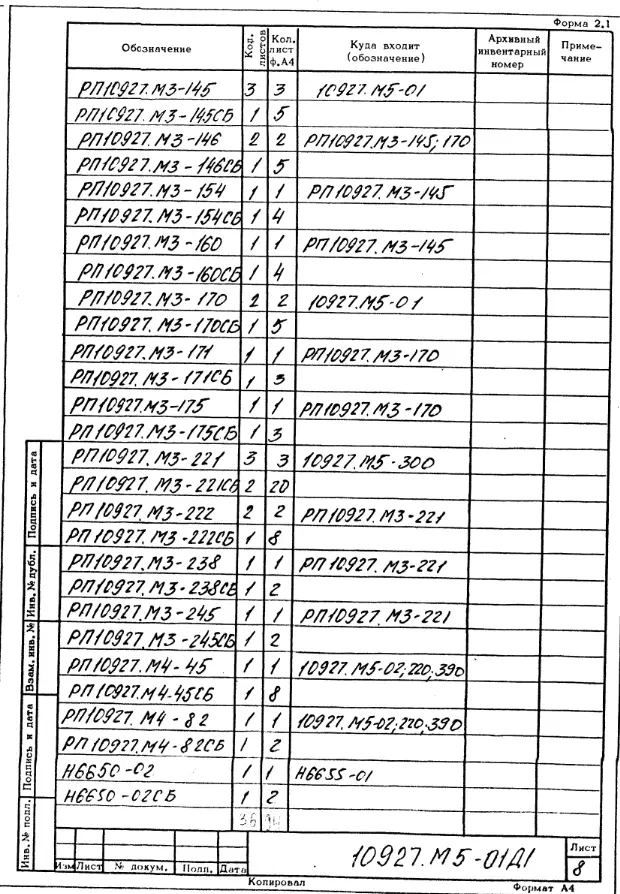 Форма 2.1
Обозначение Кол. листов Кол. лист ф.А4 Куда входит (обозначение) Архивный инвентарный номер Приме- чание
РП10927.М3-145 3 3 10927.М5-01
РП10927.М3-145СБ 1 5
РП10927.М3-146 2 2 РП10927.М3-145; 170
РП10927.М3-146СБ 1 5
РП10927.М3-154 1 1 РП10927.М3-145
РП10927.М3-154СБ 1 4
РП10927.М3-160 1 1 РП10927.М3-145
РП10927.М3-160СБ 1 4
РП10927.М3-170 2 2 10927.М5-01
РП10927.М3-170СБ 1 5
РП10927.М3-171 1 1 РП10927.М3-170
РП10927.М3-171СБ 1 3
РП10927.М3-175 1 1 РП10927.М3-170
РП10927.М3-175СБ 1 3
РП10927.М3-221 3 3 10927.М5-300
РП10927.М3-221СБ 2 20
РП10927.М3-222 2 2 РП10927.М3-221
РП10927.М3-222СБ 1 8
РП10927.М3-238 1 1 РП10927.М3-221
РП10927.М3-238СБ 1 2
РП10927.М3-245 1 1 РП10927.М3-221
РП10927.М3-245СБ 1 2
РП10927.М4-45 1 1 10927.М5-02; 220; 390
РП10927.М4-45СБ 1 8
РП10927.М4-82 1 1 10927.М5-02; 220; 390
РП10927.М4-82СБ 1 2
Н6650-02 1 1 Н6655-01
Н6650-02СБ 1 2
36 94
Подпись и дата
Инв.№ дубл.
Взам. инв.№
Подпись и дата
Инв.№ подл.
10927.М5-01Д1
Лист
8
Изм Лист № докум. Подп. Дата
Копировал Формат А4